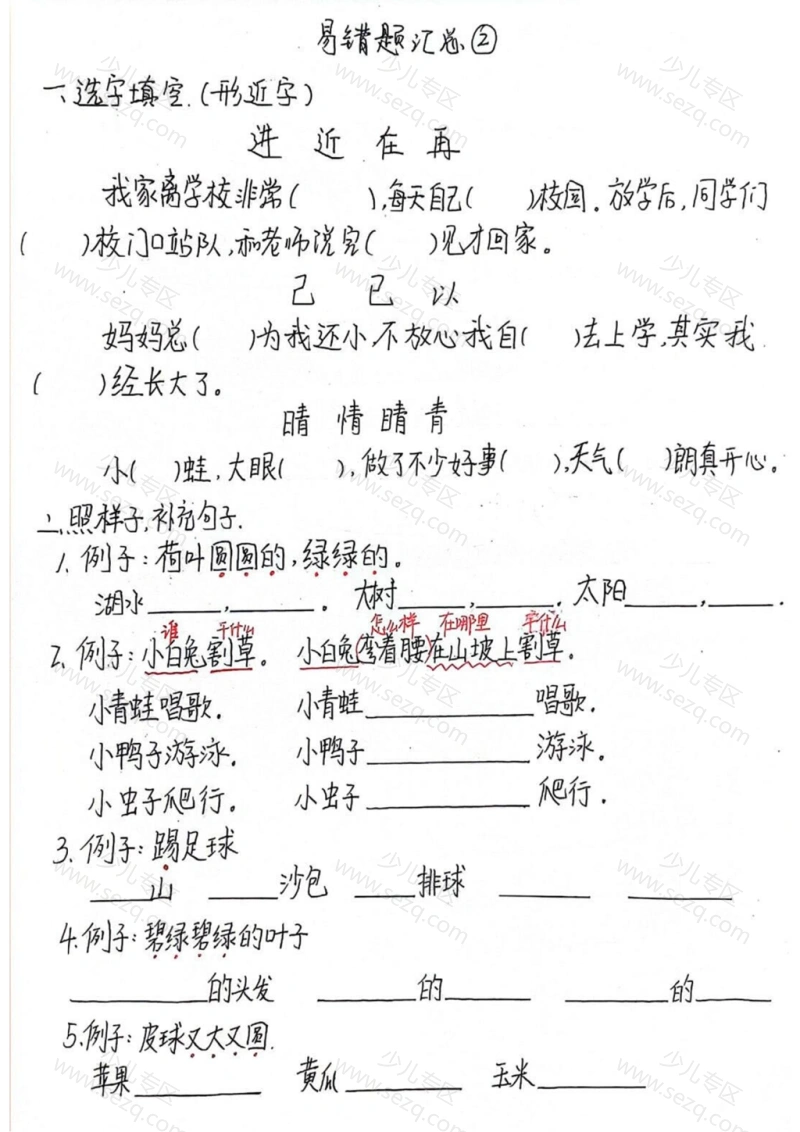 易错题汇总②
一、选字填空.(形近字)
进 近 在 再
我家离学校非常( ),每天自己( )校园。放学后,同学们
( )校门口站队,和老师说完( )见才回家。
己 已 以
妈妈总( )为我还小,不放心我自( )去上学,其实我
( )经长大了。
晴 情 睛 青
小( )蛙,大眼( ),做了不少好事( ),天气( )朗真开心。
二、照样子,补充句子.
1. 例子:荷叶圆圆的,绿绿的。
湖水______,______。 大树______,______. 太阳______,______.
谁 干什么 怎么样 在哪里 干什么
2. 例子:小白兔割草。 小白兔(弯着腰)在山坡上割草。
小青蛙唱歌. 小青蛙____________唱歌.
小鸭子游泳. 小鸭子____________游泳.
小虫子爬行. 小虫子____________爬行.
3. 例子:踢足球
______山 ______沙包 ______排球 ______ ______
4. 例子:碧绿碧绿的叶子
____________的头发 ____________的______ ____________的______
5. 例子:皮球又大又圆.
苹果____________ 黄瓜____________ 玉米____________
少儿专区
www.sezq.com